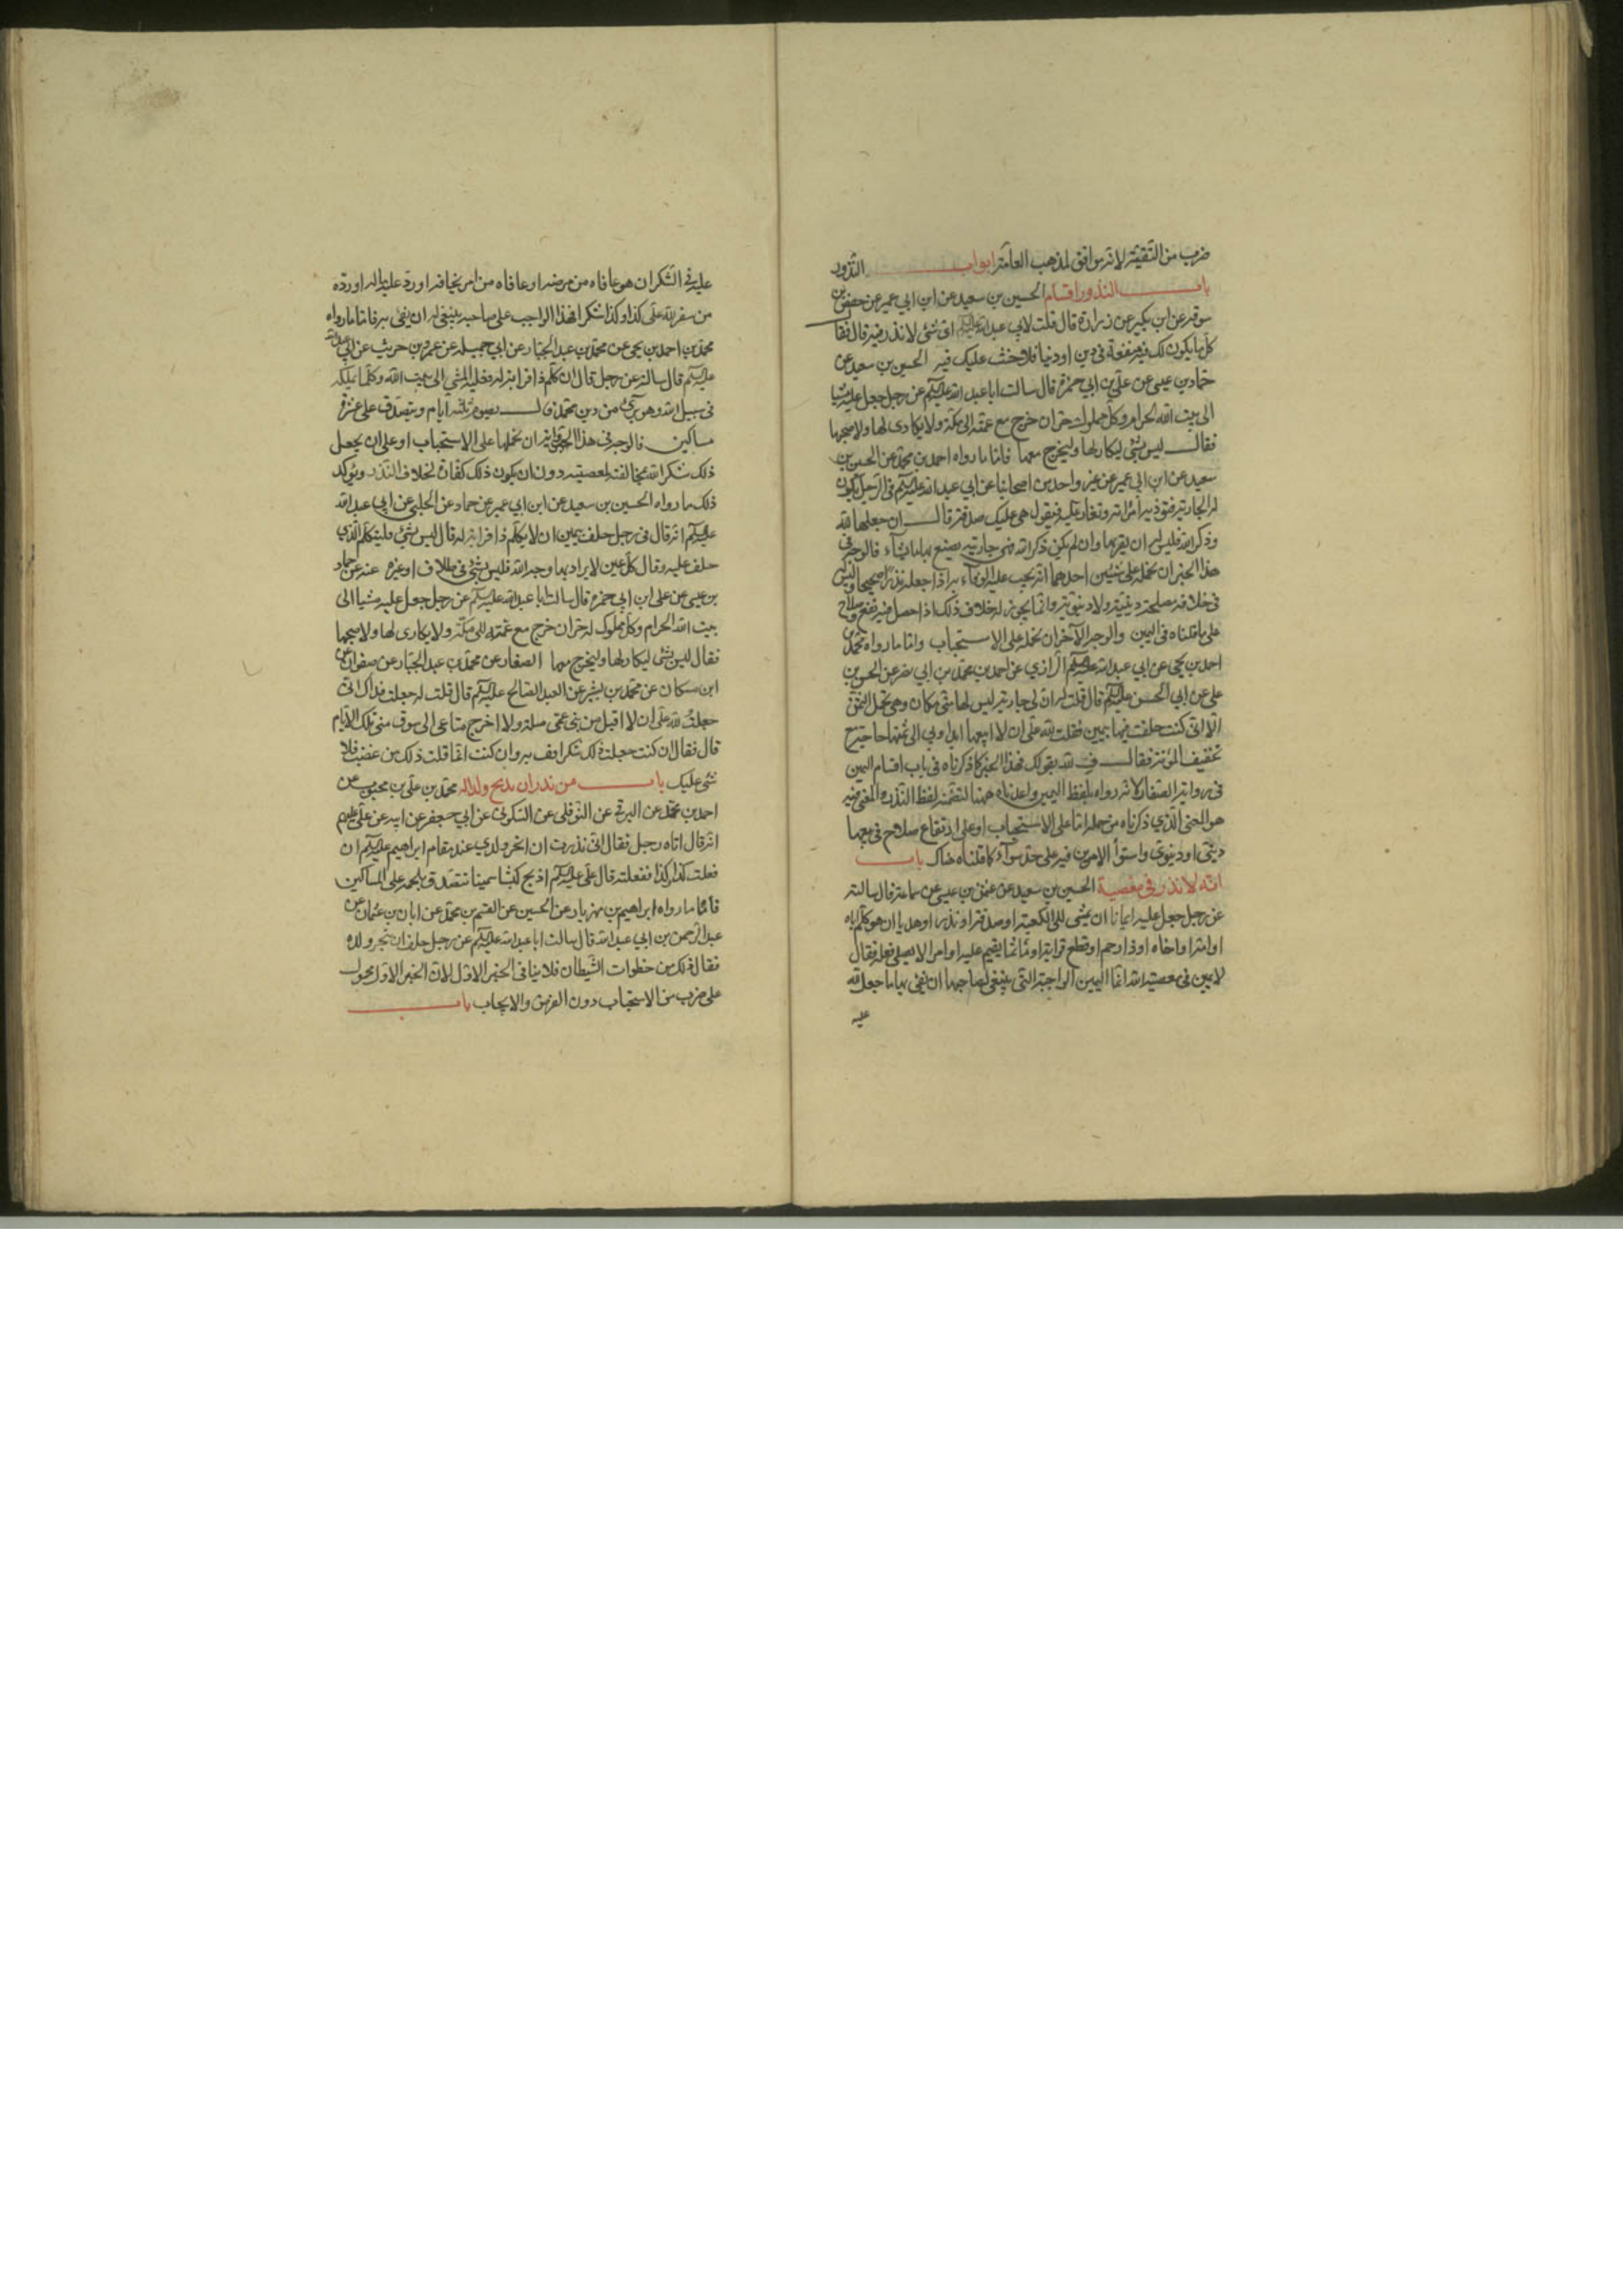 ضرب من التقية لانه موافق لمذهب العامة ابواب النذور
باب النذور اقسام الحسين بن سعيد عن ابن ابي عمير عن حفص بن
سوقه عن ابن بكير عن زرارة قال قلت لابي عبد الله عليه السلم اى شئ لا نذر فيه قال فقا
كل ما يكون لك فيه منفعة في دين او دنيا فلا حنث عليك فيه الحسين بن سعيد عن
حماد بن عيسى عن علي بن ابي حمزة قال سالت ابا عبد الله عليه السلم عن رجل جعل عليه مشيا
الى بيت الله الحرام وكل مملوك له حر ان خرج مع عمته الى مكة ولا يكارى لها ولا صحبها
فقال ليس بشئ ليكار لها وليخرج معها فاما ما رواه احمد بن محمد عن الحسين بن
سعيد عن ابن ابي عمير عن غير واحد من اصحابنا عن ابي عبد الله عليه السلم فى الرجل يكون
له الجارية فتوذيه امراته وتغار عليه فيقول هى عليك صدقة قال ان جعلها لله
وذكر الله فليس له ان يقربها وان لم يكن ذكر الله فهى جاريته يصنع بها ما شاء فالوجه فى
هذا الخبر ان نحمله على شيئين احدهما انه يجب عليه الوفاء به اذا جعله نذرا صحيحا وليس
فى خلافه مصلحة دينية ولا دنيوية وانما يجوز له خلاف ذلك اذا حصل فيه نفع وصلاح
على ما قلناه فى اليمين والوجه الآخر ان نحمله على الاستحباب واما ما رواه محمد بن
احمد بن يحيى عن ابي عبد الله الرازي عن احمد بن محمد بن ابي نصر عن الحسن بن
على عن ابي الحسن عليه السلم قال قلت له ان لى جارية ليس لها منى مكان وهى تحمل الثمن
الا انى كنت حلفت فيها بيمين فقلت لله على ان لا ابيعها ابدا وبي الى ثمنها حاجة مع
تخفيف المؤنة فقال فِ لله بقولك فهذا الخبر كما ذكرناه فى باب اقسام اليمين
فى رواية الصفار لانه رواه بلفظ اليمين واعدناه ههنا لتضمنه لفظ النذر والمعنى فيه
هو المعنى الذي ذكرناه من حمله اما على الاستحباب او على ارتفاع صلاح فى بيعها
دينى او دنيوى واستوا الامرين فيه على حد سواء كما قلناه هناك باب
انه لا نذر فى معصية الحسين بن سعيد عن عثمن بن عيسى عن سماعة قال سالته
عن رجل جعل عليه ايمانا ان يمشى الى الكعبة او صدقة او نذرا او هديا ان هو كلم اباه
او امه او اخاه او ذا رحم او قطع قرابة او مأثما يقيم عليه او امر لا يصلح فعله فقال
لا يمين فى معصية الله انما اليمين الواجبة التى ينبغى لصاحبها ان يفى بها ما جعل لله
عليه
عليه فى الشكر ان هو عافاه من مرضه او عافاه من امر يخافه او رد عليه ماله او رده
من سفر لله على كذا وكذا شكرا فهذا الواجب على صاحبه ينبغى له ان يفى به فاما ما رواه
محمد بن احمد بن يحيى عن محمد بن عبد الجبار عن ابي جميله عن عمرو بن حريث عن ابي عبد الله
عليه السلم قال سالته عن رجل قال ان كلم ذا قرابة له فعليه المشى الى بيت الله وكلما يملكه
فى سبيل الله وهو برئ من دين محمد قال يصوم ثلثة ايام ويتصدق على عشرة
مساكين فالوجه فى هذا ان نحملها على الاستحباب او على ان يجعل
ذلك شكرا لله بمخالفته لمعصيته دون ان يكون ذلك كفارة لخلاف النذر ويؤكد
ذلك ما رواه الحسين بن سعيد عن ابن ابي عمير عن حماد عن الحلبي عن ابي عبد الله
عليه السلم انه قال فى رجل حلف بيمين ان لا يكلم ذا قرابة له قال ليس بشئ فليتكلم الذي
حلف عليه وقال كل يمين لا يراد بها وجه الله فليس بشئ فى طلاق او غيره عنه عن حماد
بن عيسى عن على ابن ابي حمزة قال سالت ابا عبد الله عليه السلم عن رجل جعل عليه مشيا الى
بيت الله الحرام وكل مملوك له حر ان خرج مع عمته الى مكة ولا يكارى لها ولا صحبها
فقال ليس بشئ ليكار لها وليخرج معها الصفار عن محمد بن عبد الجبار عن صفوان عن
ابن مسكان عن محمد بن بشير عن العبد الصالح عليه السلم قال قلت له جعلت فداك انى
جعلت لله على ان لا اقبل من بنى عمى صلة ولا اخرج متاعى الى سوق منى تلك الايام
قال فقال ان كنت جعلت ذلك شكرا فف به وان كنت انما قلت ذلك من غضب فلا
شئ عليك باب من نذر ان يذبح ولدا له محمد بن على بن محبوب عن
احمد بن محمد عن البرقى عن النوفلى عن السكونى عن ابي جعفر عن ابيه عن على عليهم
انه قال اتاه رجل فقال انى نذرت ان انحر ولدي عند مقام ابراهيم عليه السلم ان
فعلت كذا وكذا ففعلته قال على عليه السلم اذبح كبشا سمينا تتصدق بلحمه على المساكين
فأما ما رواه ابراهيم بن مهزيار عن الحسين عن القسم بن محمد عن ابان بن عثمان عن
عبد الرحمن بن ابي عبد الله قال سالت ابا عبد الله عليه السلم عن رجل حلف ان ينحر ولده
فقال ذلك من خطوات الشيطان فلا ينافى الخبر الاول لان الخبر الاول محمول
على ضرب من الاستحباب دون الفرض والايجاب باب